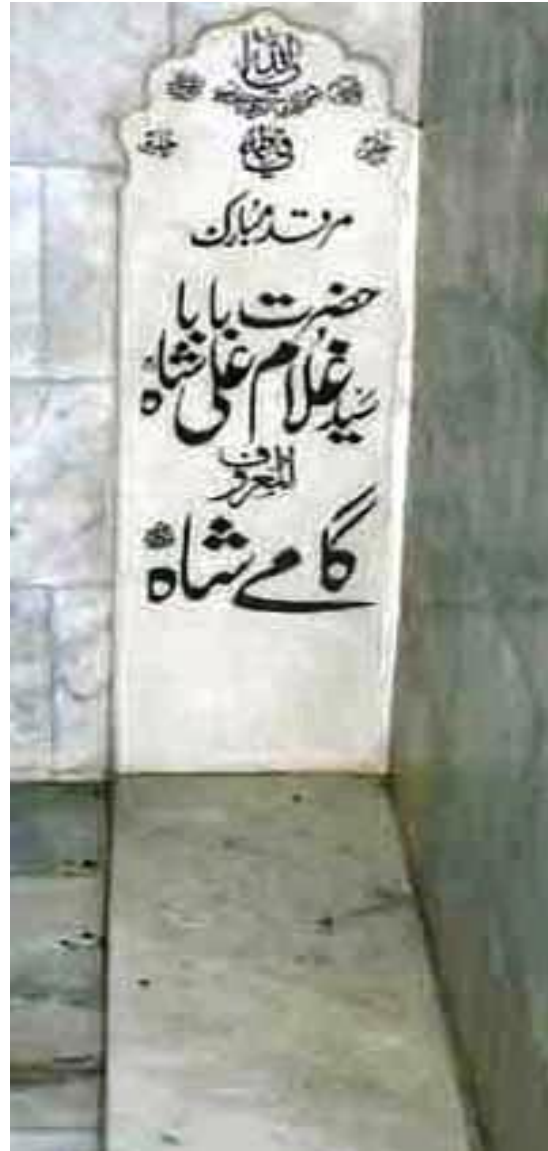 یا اللہ
یا فاطمہ
مرقد مبارک
حضرت بابا
سید غلام علی شاہ
المعروف
گامے شاہ